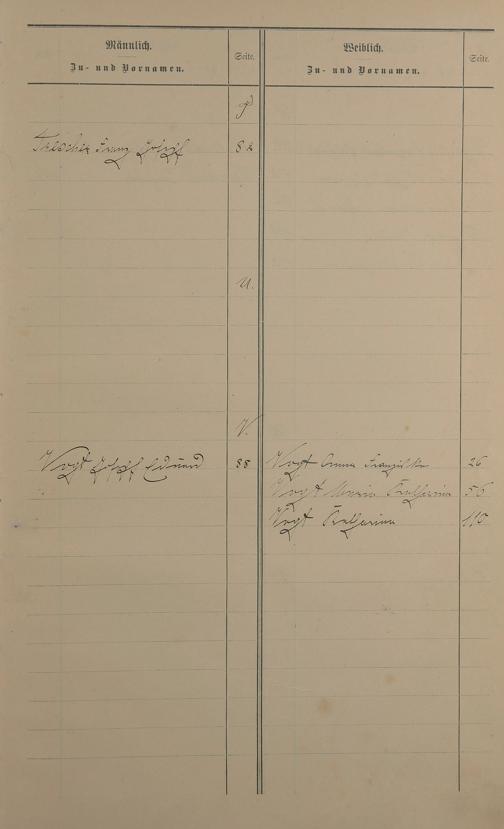 Männlich.
Zu- und Vornamen.
Seite.
Weiblich.
Zu- und Vornamen.
Seite.
Franz Josef 82
U.
V.
Vogt Josef Eduard 88
Vogt Anna Franziska 26
Vogt Maria Katharina 56
Vogt Katharina 115